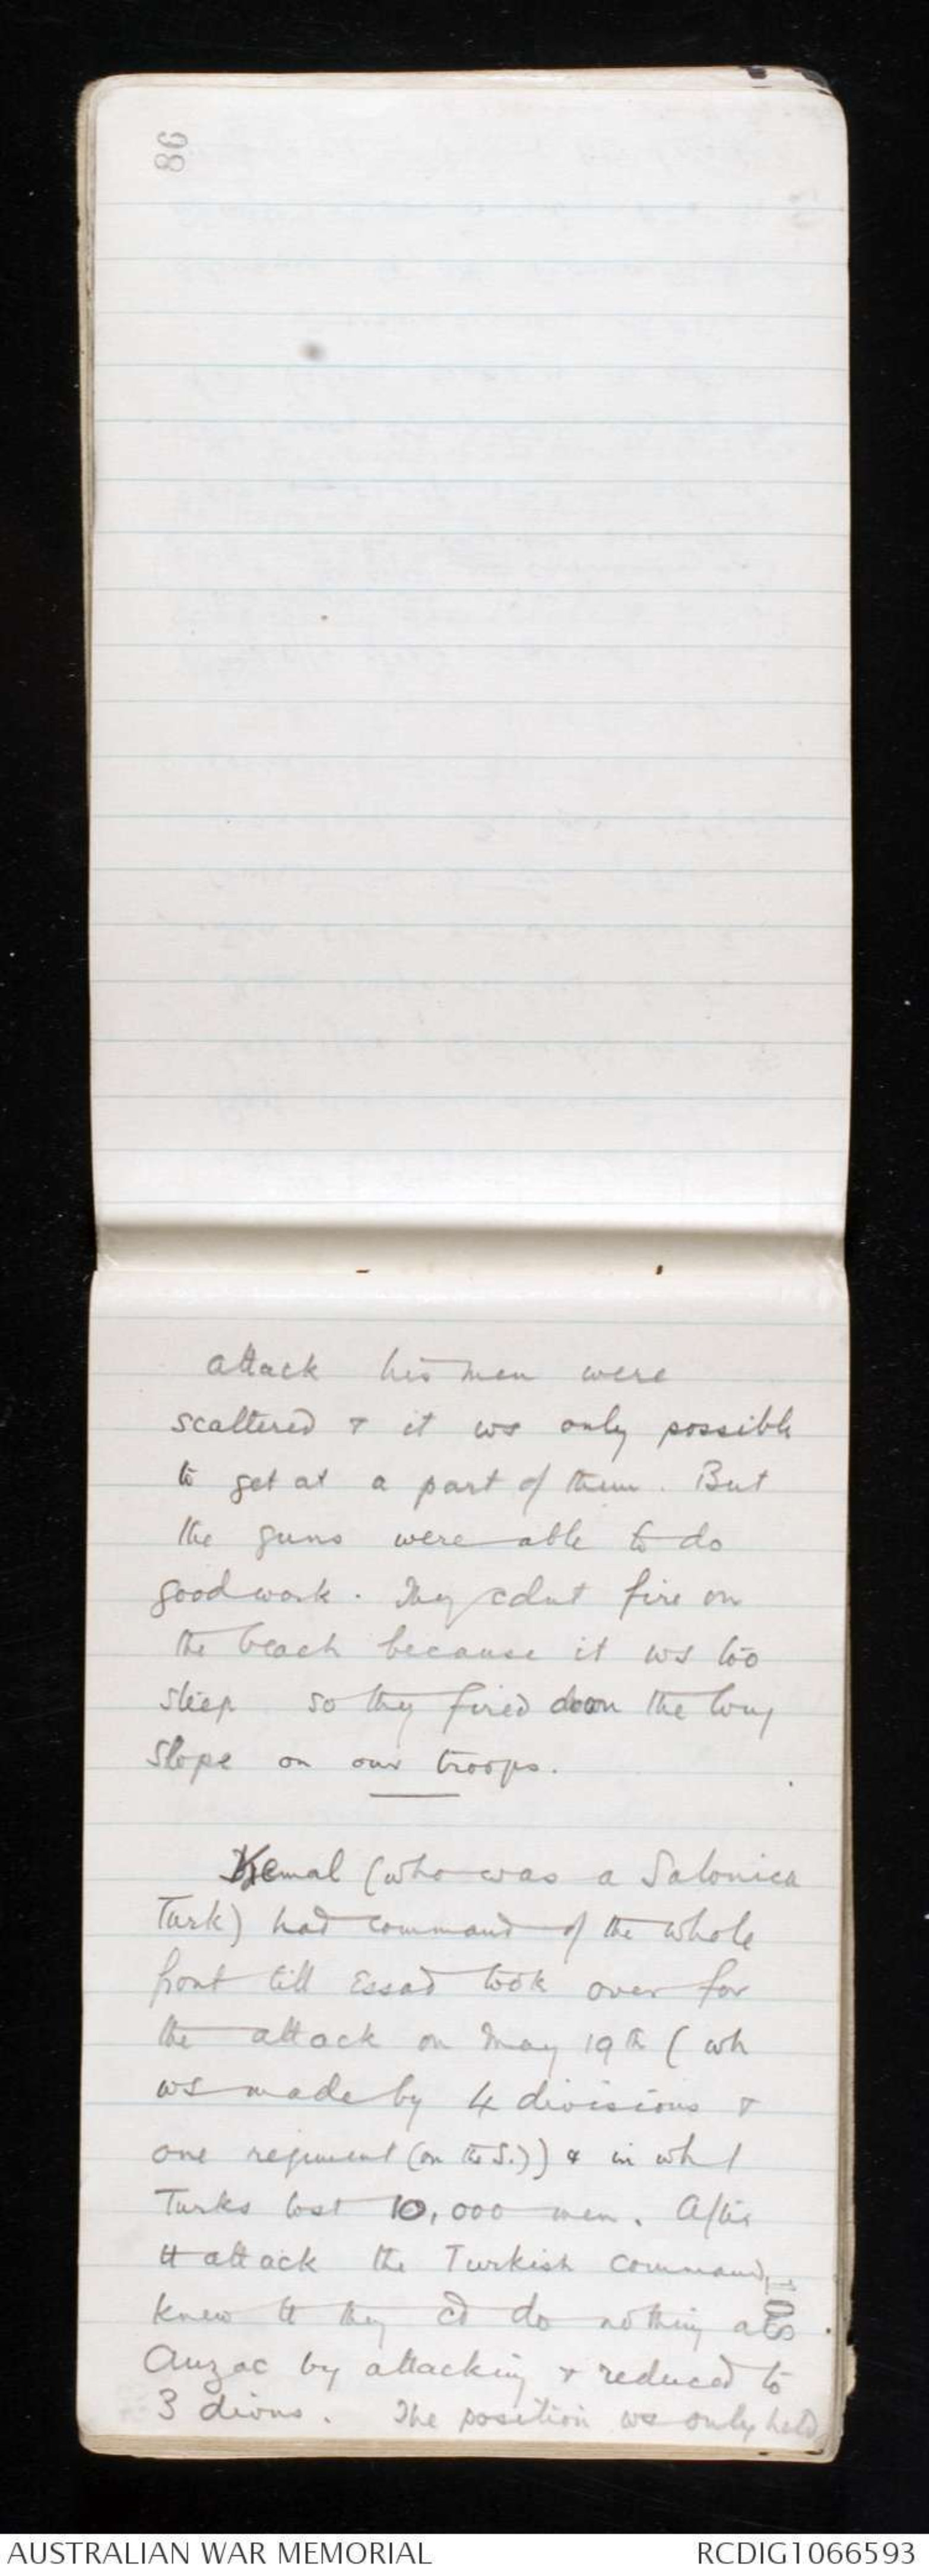 86
attack his men were
scattered & it ws only possible
to get at a part of them. But
the guns were able to do
good work. They cdnt fire on
the beach because it ws too
steep so they fired down the long
slope on our troops.
Kemal (who was a Salonica
Turk) had command of the whole
front till Essad took over for
the attack on May 19th (wh
ws made by 4 divisions &
one regiment (on the S.)) & in wh
Turks lost 10,000 men. After
tt attack the Turkish command
knew tt they cd do nothing at
Anzac by attacking & reduced to
3 divns. The position ws only held
108
AUSTRALIAN WAR MEMORIAL
RCDIG1066593